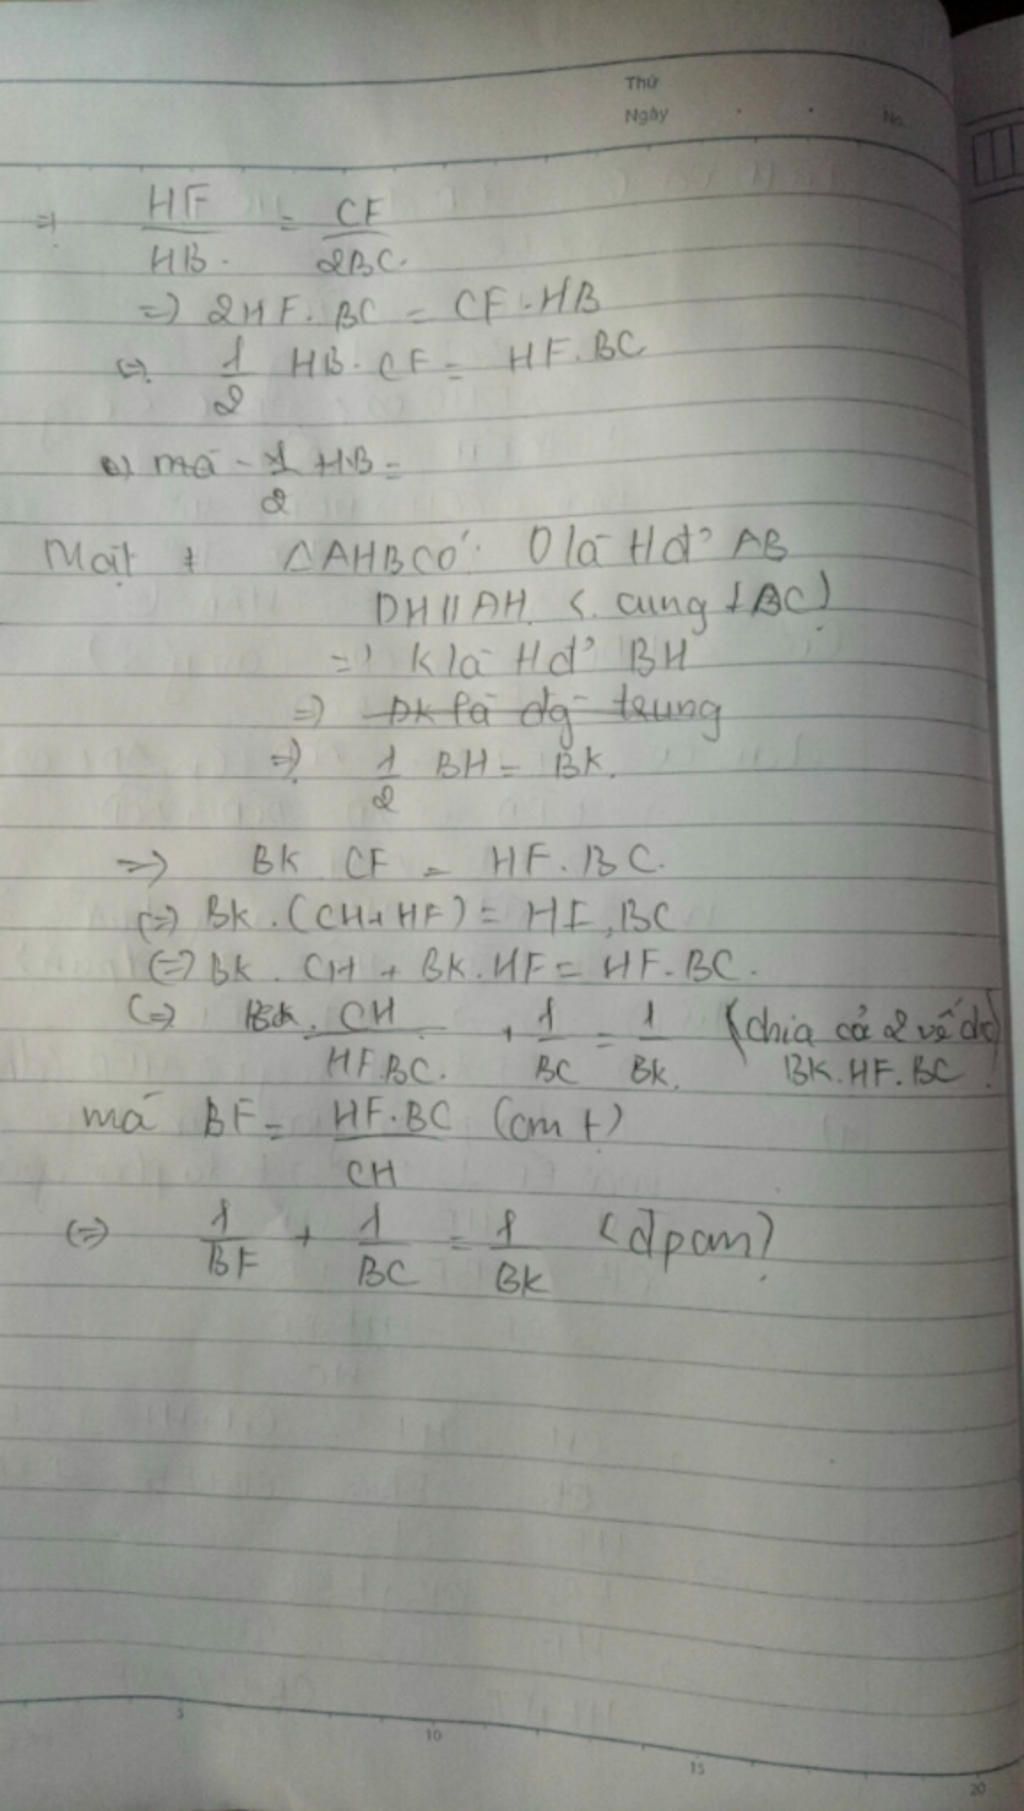 Thứ
Ngày
No.
=> HF/HB = CF/2BC.
=> 2HF.BC = CF.HB
<=> 1/2 HB.CF = HF.BC
mà 1/2 HB =
Mặt ≠ △AHB có: O là tđ' AB
DH // AH (cùng ⊥ BC)
=> K là tđ' BH
=> DK là đg trung
=> 1/2 BH = BK.
=> BK.CF = HF.BC.
<=> BK.(CH+HF) = HF.BC
<=> BK.CH + BK.HF = HF.BC.
<=> CH/HF.BC. + 1/BC = 1/BK. (chia cả 2 vế cho
BK.HF.BC)
mà BF = HF.BC/CH (cmt)
<=> 1/BF + 1/BC = 1/BK (đpcm)
5
10
15
20